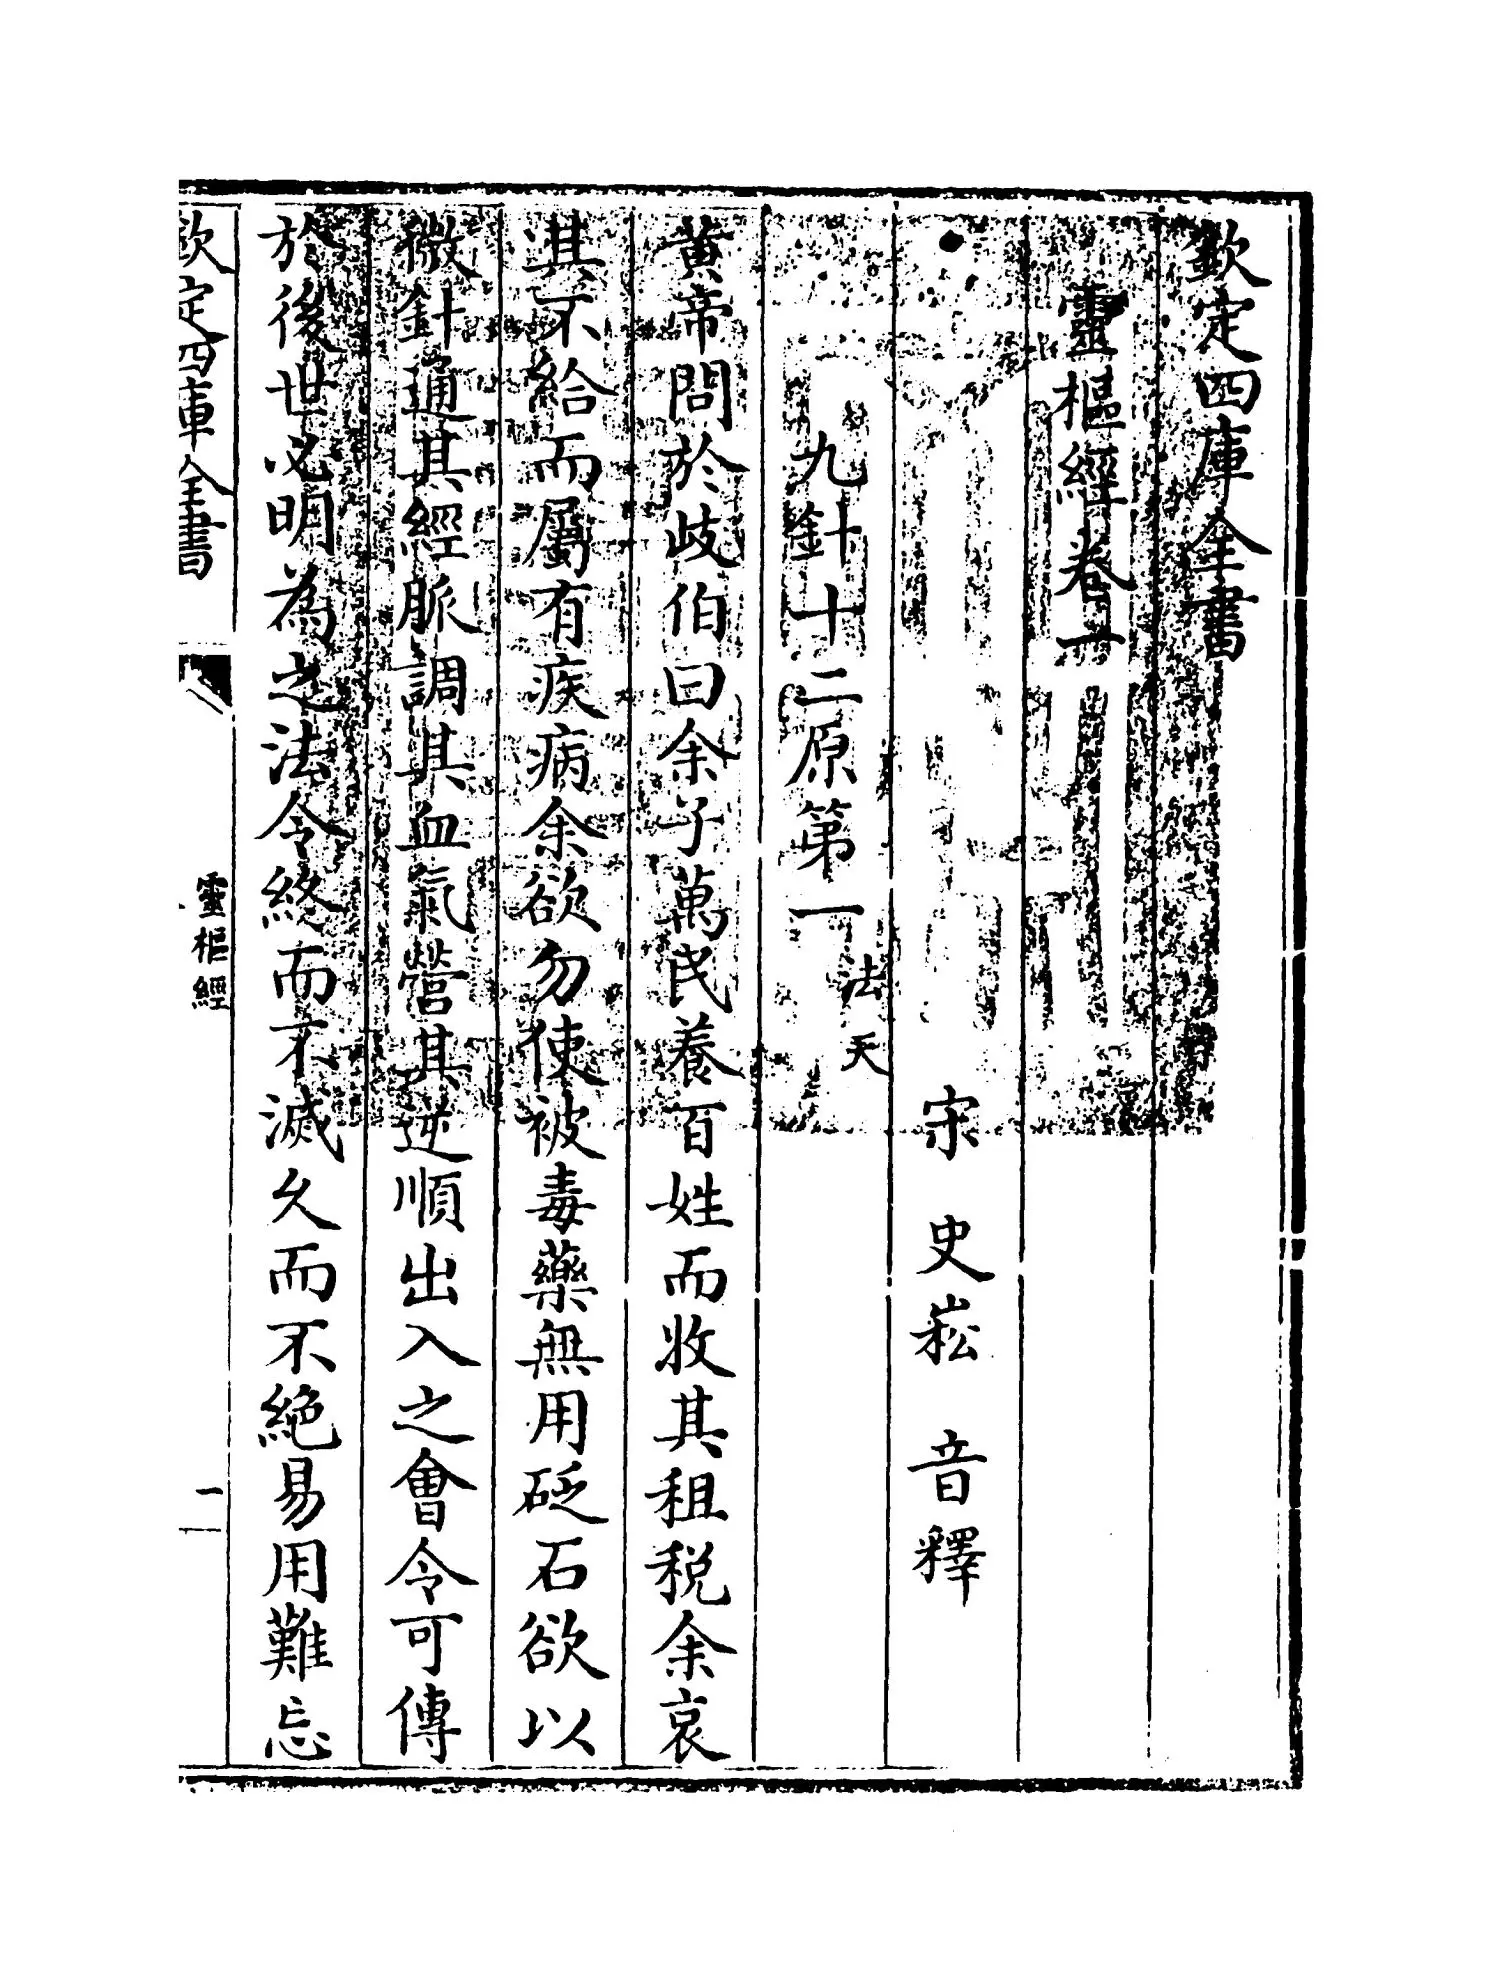 欽定四庫全書
靈樞經卷一
宋 史崧 音釋
九針十二原第一 法天
黃帝問於歧伯曰余子萬民養百姓而收其租稅余哀
其不給而屬有疾病余欲勿使被毒藥無用砭石欲以
微針通其經脈調其血氣營其逆順出入之會令可傳
於後世必明為之法令終而不滅久而不絕易用難忘
欽定四庫全書
靈樞經
一